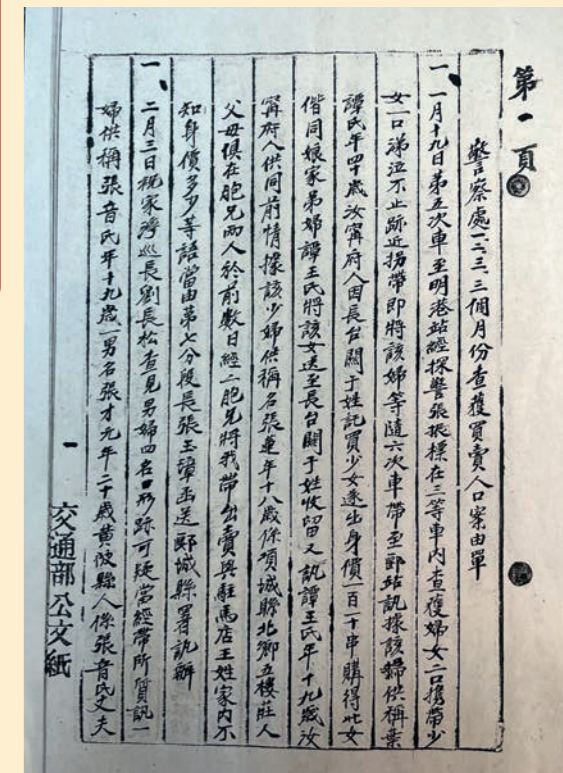 第一頁
警察處一、二、三、三個月份查獲買賣人口案由單
一、一月十九日第五次車至明港站經探警張振標在三等車内查獲婦女二口携帶少
女一口涕泣不止跡近拐帶即將該婦等隨六次車帶至郾站訊據該婦供稱葉
譚氏年四十歲汝甯府人因長台關于姓託買少女遂出身價一百一十串購得此女
偕同娘家弟婦譚王氏將該女送至長台關于姓收留又訊譚王氏年十九歲汝
甯府人供同前情據該少婦供稱名張蓮年十八歲係項城縣北鄉五樓莊人
父母俱在胞兄兩人於前數日經二胞兄將我帶出賣與駐馬店王姓家内不
知身價多少等語當由第七分段長張玉璋函送郾城縣署訊辦
一、二月三日祝家灣巡長劉長松查見男婦四名口形跡可疑當經帶所質訊一
婦供稱張音氏年十九歲一男名張才元年二十歲黄陂縣人係張音氏丈夫
一
交通部公文紙